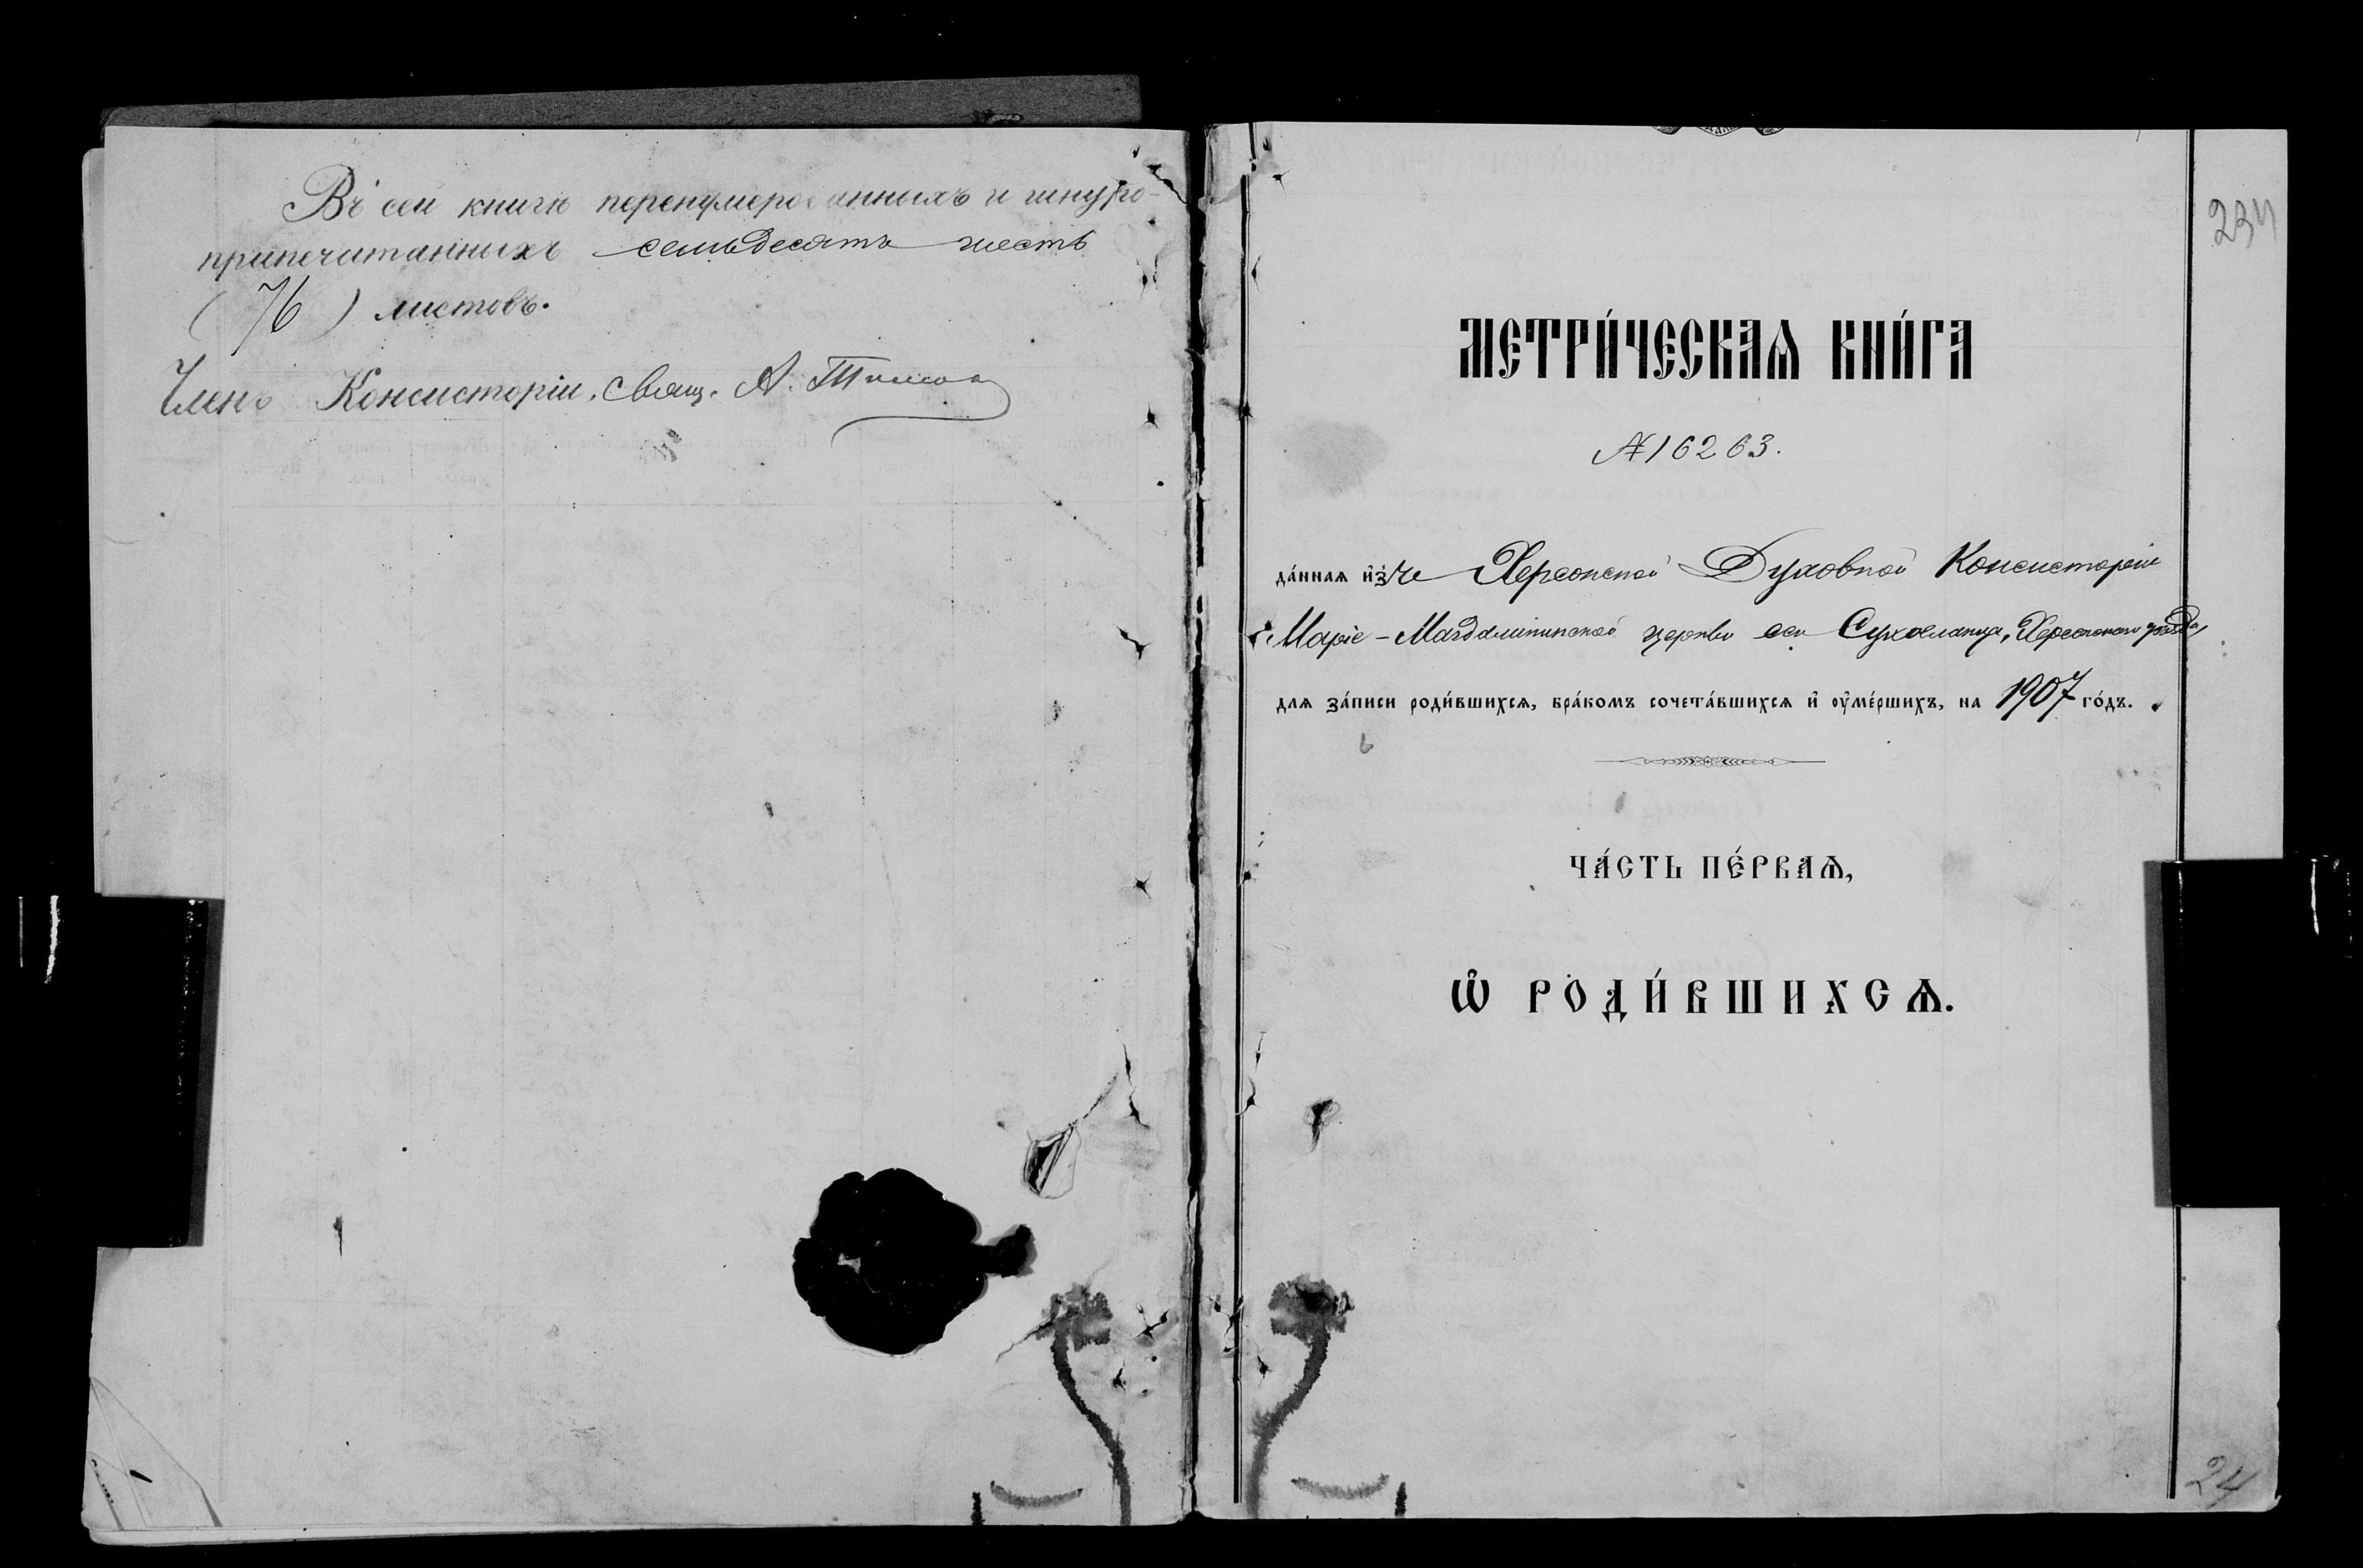 Въ сей книгѣ перенумерованныхъ и шнуро-
припечатанныхъ семьдесятъ шесть
(76) листовъ.
Членъ Консисторіи, свящ. А.
234
МЕТРИ́ЧЕСКАѦ КНИ́ГА
№ 16263.
да́ннаѧ и҆зъ Херсонской Духовной Консисторіи
Маріе-Магдалининской церкви сел. Сухоеланца, Херсонскаго уѣзда,
длѧ за́писи роди́вшихсѧ, бра́комъ сочета́вшихсѧ и҆ оу҆ме́ршихъ, на 1907 го́дъ.
ЧА́СТЬ ПЕ́РВАѦ,
Ѡ҆ РОДИ́ВШИХСѦ.
24